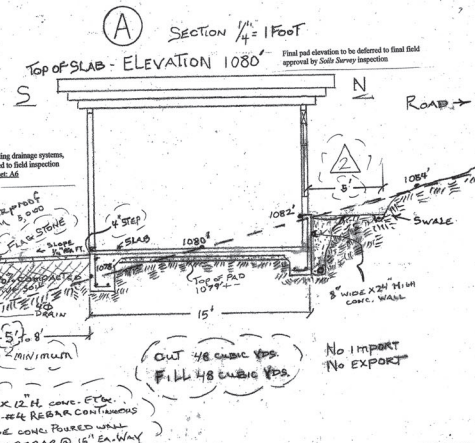 A
SECTION 1/4" = 1 FOOT
TOP OF SLAB - ELEVATION 1080'
Final pad elevation to be deferred to final field
approval by Soils Survey inspection
S
N
ROAD →
ing drainage systems,
ed to field inspection
et: A6
2
5'
1084'
5,000
FLAGSTONE
4" STEP
1082'
SWALE
SLOPE
SLAB
1080'
1078'
TOP OF PAD
1079'±
DRAIN
8" WIDE X 24" HIGH
CONC. WALL
15'
5' TO 8'
MINIMUM
CUT 48 CUBIC YDS.
FILL 48 CUBIC YDS.
NO IMPORT
NO EXPORT
X 12" H. CONC. FTG.
#4 REBAR CONTINUOUS
CONC POURED WALL
@ 16" EA. WAY